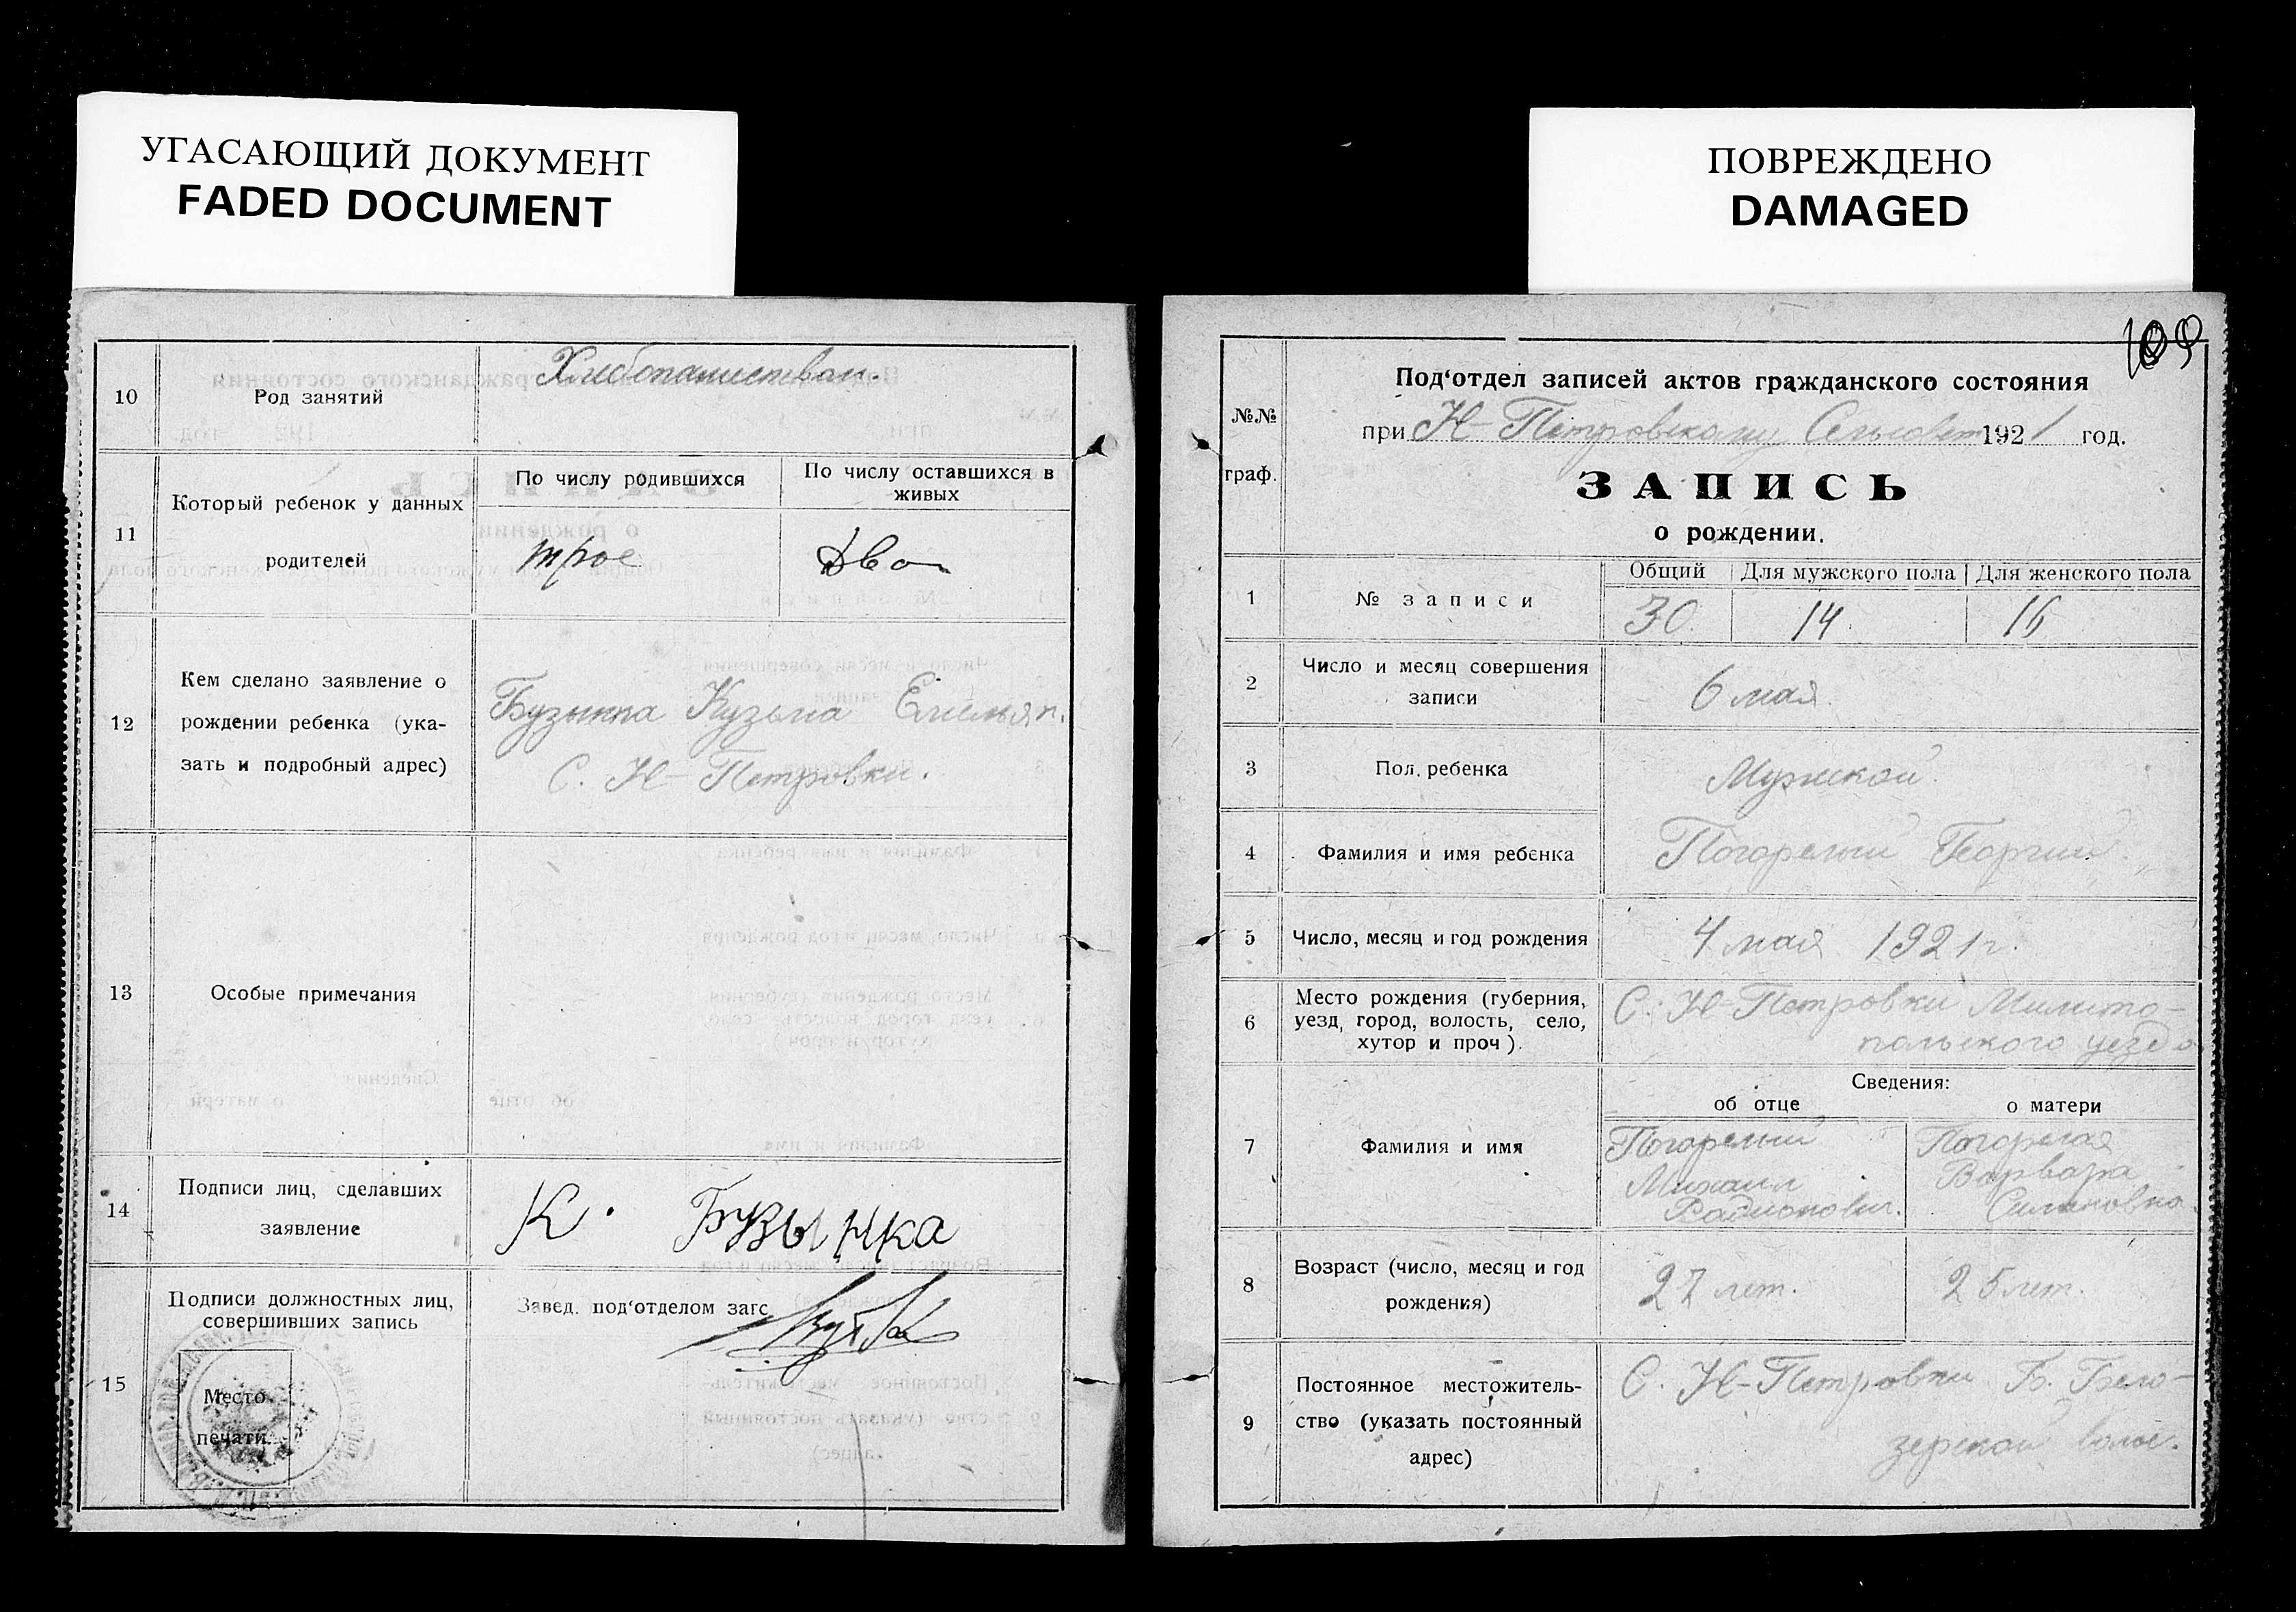 УГАСАЮЩИЙ ДОКУМЕНТ
FADED DOCUMENT
10
Род занятий
Хлебопашеством.
11
Который ребенок у данных
родителей
По числу родившихся
По числу оставшихся в
живых
трое
Два
12
Кем сделано заявление о
рождении ребенка (ука-
зать и подробный адрес)
Бузынка Кузьма Емельян.
С. Н-Петровки.
13
Особые примечания
14
Подписи лиц, сделавших
заявление
К. Бузынка
15
Подписи должностных лиц,
совершивших запись
Место
печати
Завед. под‘отделом загс
ПОВРЕЖДЕНО
DAMAGED
109
№№
граф.
Под‘отдел записей актов гражданского состояния
при Н-Петровскому Сельсовет 1921 год.
ЗАПИСЬ
о рождении.
1
№ записи
Общий
Для мужского пола
Для женского пола
30
14
16
2
Число и месяц совершения
записи
6 мая.
3
Пол. ребенка
Мужской
4
Фамилия и имя ребенка
Погорелый Георгий.
5
Число, месяц и год рождения
4 мая 1921 г.
6
Место рождения (губерния,
уезд, город, волость, село,
хутор и проч).
С. Н-Петровки Милито-
польского уезда
7
Фамилия и имя
Сведения:
об отце
о матери
Погорелый
Михаил
Радионович.
Погорелая
Варвара
8
Возраст (число, месяц и год
рождения)
27 лет.
25 лет.
9
Постоянное местожитель-
ство (указать постоянный
адрес)
С. Н-Петровки Б. Бело-
зерской волос.